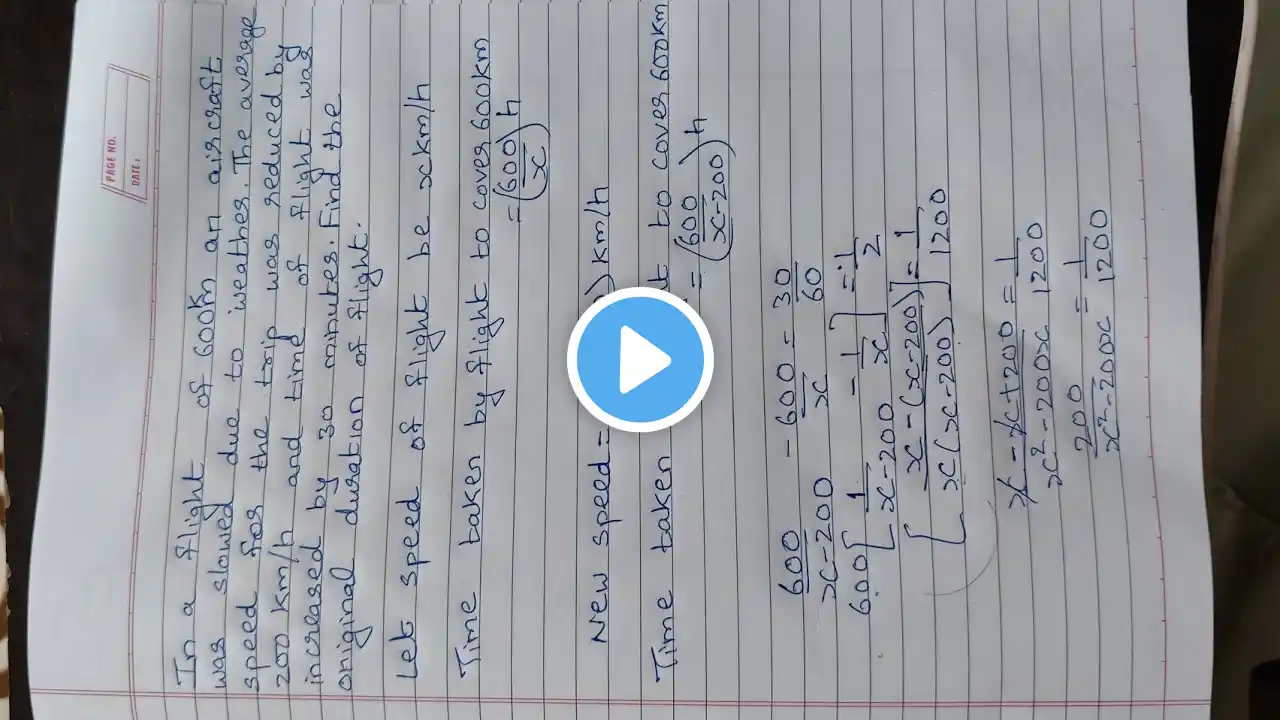 PAGE NO.
DATE:
In a flight of 600km an aircraft
was slowed due to weather. The average
speed for the trip was reduced by
200 km/h and time of flight was
increased by 30 minutes. Find the
original duration of flight.
Let speed of flight be x km/h
Time taken by flight to cover 600km
= (600/x) h
New speed = ) km/h
Time taken to cover 600km
= (600/x-200) h
600/x-200 - 600/x = 30/60
600[1/x-200 - 1/x] = 1/2
[x-(x-200)/x(x-200)] = 1/1200
x-x+200/x²-200x = 1/1200
200/x²-200x = 1/1200